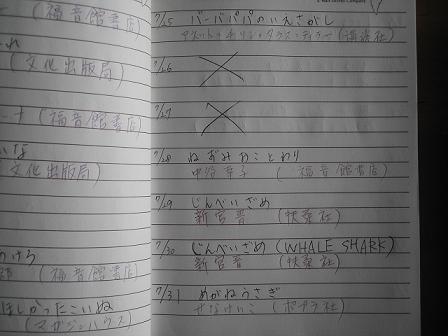 (福音館書店)
れ
(文化出版局)
(福音館書店)
な
文化出版局)
けら
(福音館書店)
ほしかったこいぬ
(マガジンハウス)
7/25 バーバパパのいえさがし
アネット・チゾン・タラス・テイラー (講談社)
7/26
7/27
7/28 ねずみのことわり
中谷幸子 (福音館書店)
7/29 じんべいざめ
新宮晋 (扶桑社)
7/30 じんべいざめ (WHALE SHARK)
新宮晋 (扶桑社)
7/31 めがねうさぎ
せなけいこ (ポプラ社)